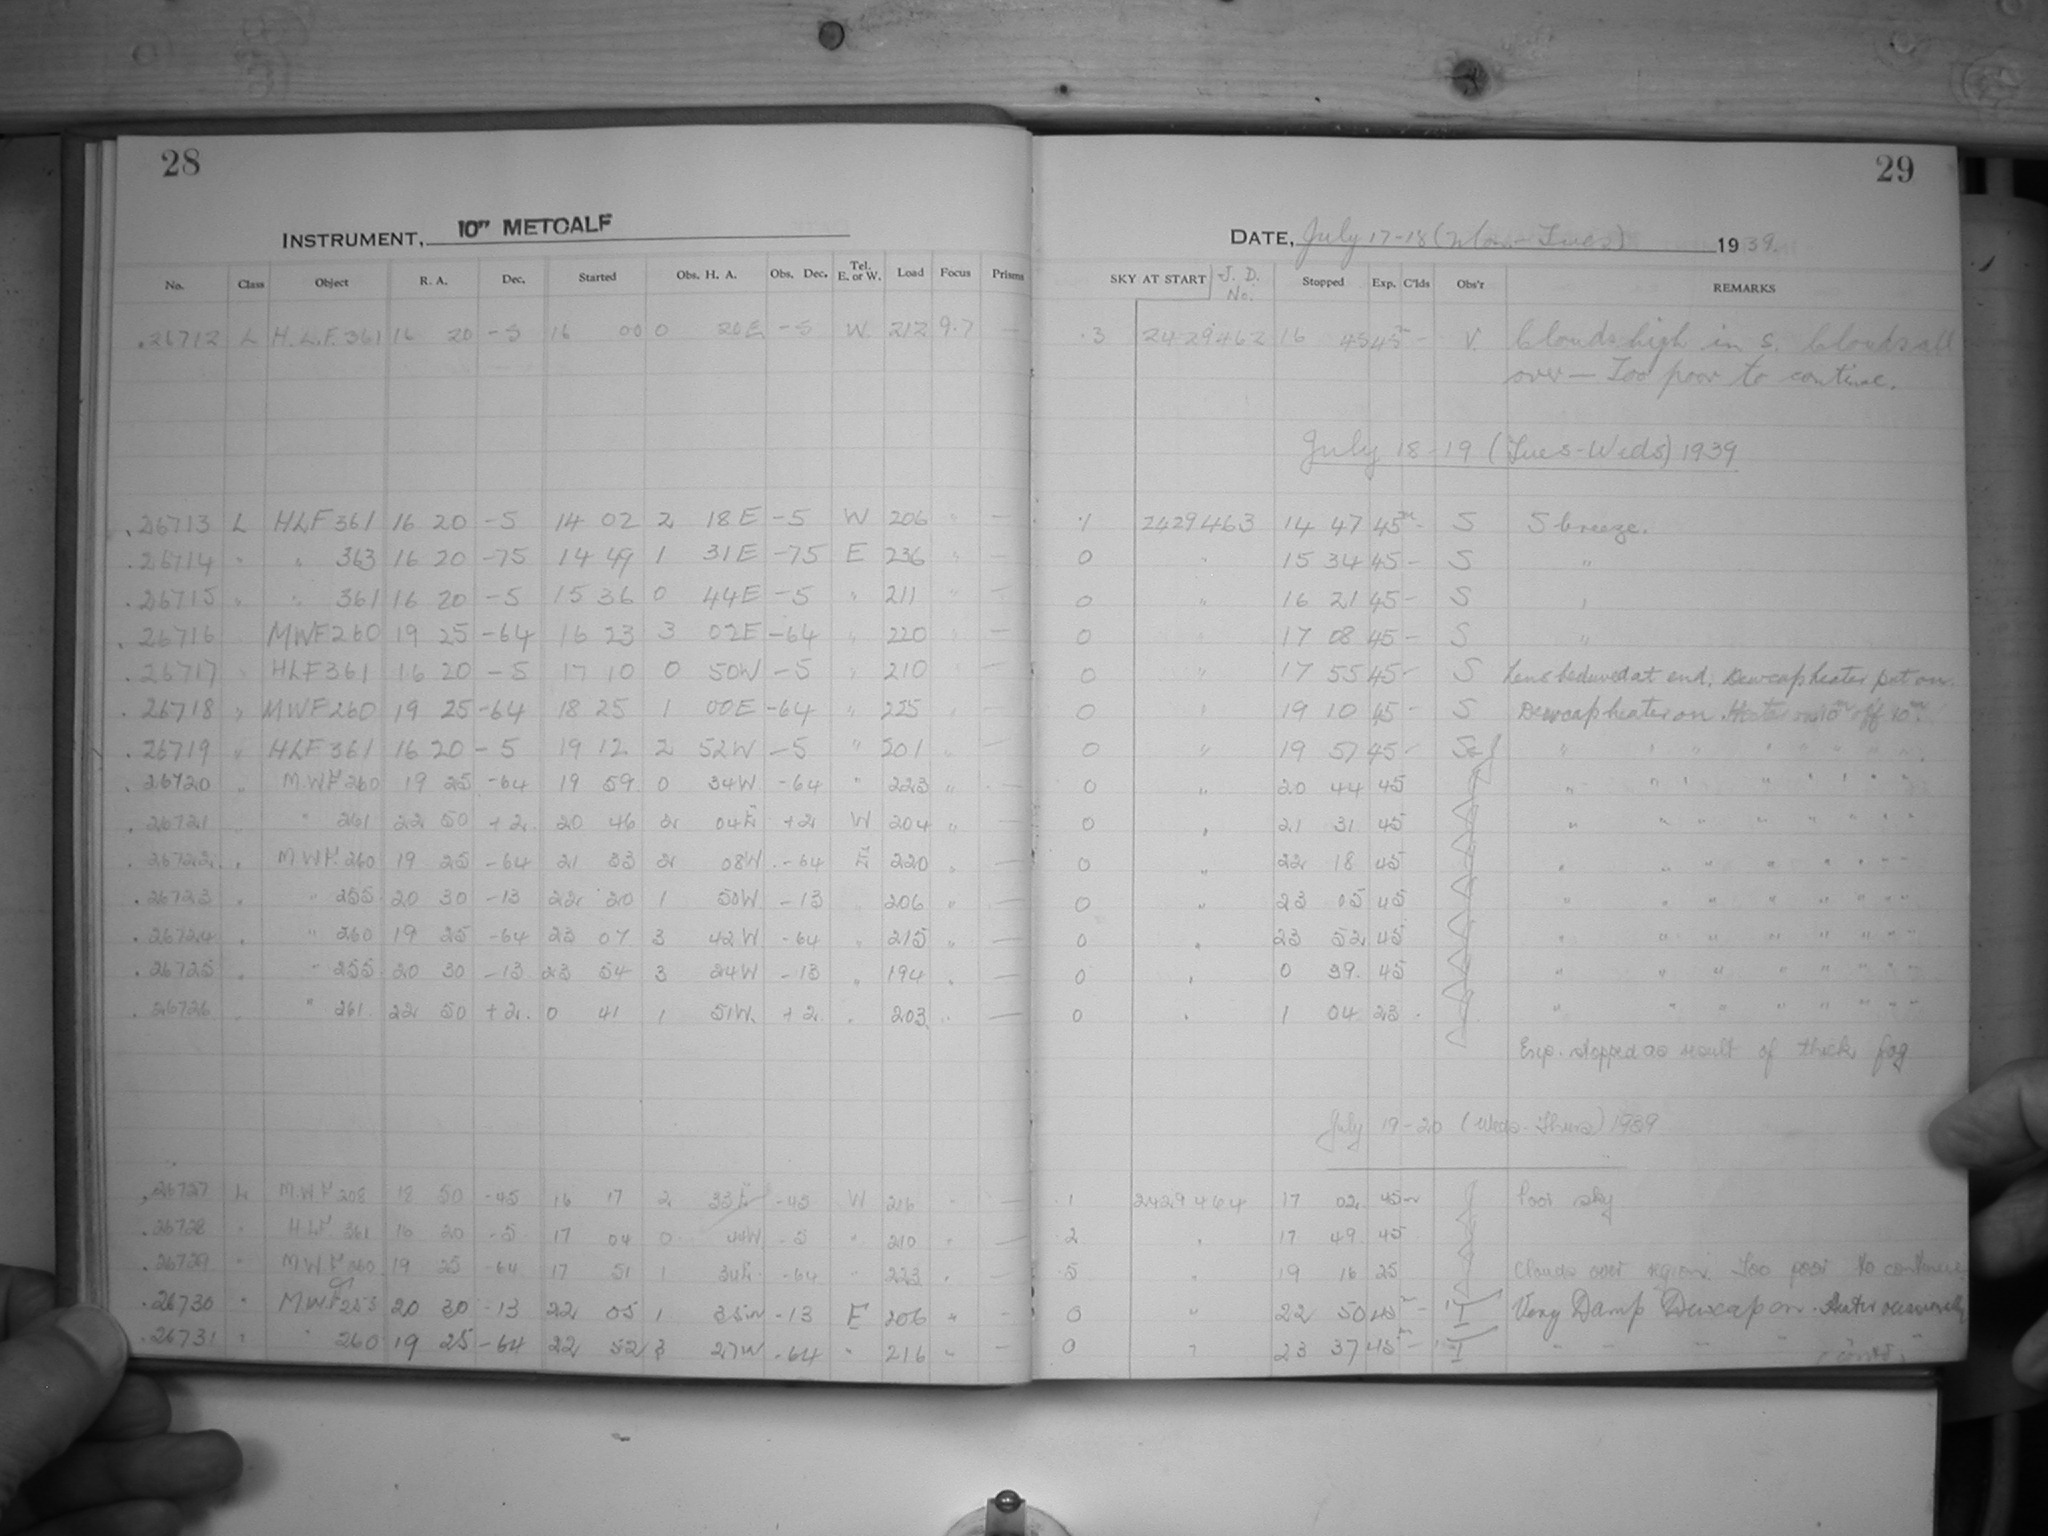 28
29
INSTRUMENT, 10" METCALF
DATE, July 17-18 (Mon - Tues) 1939.
No. Class Object R. A. Dec. Started Obs. H. A. Obs. Dec. Tel. E. or W. Load Focus Prisms SKY AT START J. D. No. Stopped Exp. C'lds Obs'r REMARKS
.26712 L H.L.F. 361 16 20 -5 16 00 0 20E -5 W. 212 9.7 — .3 2429462 16 45 45m - V. Clouds high in S. Clouds all
over — Too poor to continue.
July 18-19 (Tues-Weds) 1939
.26713 L HLF 361 16 20 -5 14 02 2 18E -5 W 206 " — .1 2429463 14 47 45m - S S breeze.
.26714 " " 363 16 20 -75 14 49 1 31E -75 E 236 " — 0 " 15 34 45 - S "
.26715 " " 361 16 20 -5 15 36 0 44E -5 " 211 " — 0 " 16 21 45 - S "
.26716 MWF 260 19 25 -64 16 23 3 02E -64 " 220 " — 0 " 17 08 45 - S "
.26717 " HLF 361 16 20 -5 17 10 0 50W -5 " 210 — 0 " 17 55 45 - S Lens bedewed at end. Dewcap heater put on.
.26718 " MWF 260 19 25 -64 18 25 1 00E -64 " 225 " — 0 " 19 10 45 - S Dewcap heater on. Heater on 10m off 10m.
.26719 " HLF 361 16 20 -5 19 12 2 52W -5 " 201 " — 0 " 19 57 45 - " " " " " " "
.26720 " M.W.F. 260 19 25 -64 19 59 0 34W -64 " 223 " — 0 " 20 44 45 " " " " " " "
.26721 " " 261 22 50 +2 20 46 2 04E +2 W 204 " 0 " 21 31 45 " " " " " " "
.26722 " M.W.F. 260 19 25 -64 21 33 2 08W -64 E 220 " — 0 " 22 18 45 " " " " " " "
.26723 " " 255 20 30 -13 22 20 1 50W -13 206 " — 0 " 23 05 45 " " " " " " "
.26724 " " 260 19 25 -64 23 07 3 42W -64 " 215 " — 0 " 23 52 45 " " " " " " "
.26725 " " 255 20 30 -13 23 54 3 24W -13 " 194 " — 0 " 0 39 45 " " " " " " "
.26726 " " 261 22 50 +2 0 41 1 51W +2 " 203 " — 0 " 1 04 23 " " " " " " "
Exp. stopped as result of thick fog
July 19-20 (Weds - Thurs) 1939
.26727 L M.W.F 208 18 50 -45 16 17 2 33E -45 W 216 " — .1 2429464 17 02 45m Poor sky
.26728 " H.L.F. 361 16 20 -5 17 04 0 44W -5 " 210 " — .2 " 17 49 45
.26729 " M.W.F. 260 19 25 -64 17 51 1 34E -64 " 223 " — .5 " 19 16 25 Clouds over region. Too poor to continue
.26730 " M.W.F. 255 20 30 -13 22 05 1 35W -13 E 206 " — 0 " 22 50 45m - Very Damp Dewcap on. Heater occasionally
.26731 " " 260 19 25 -64 22 52 3 27W -64 " 216 " — 0 " 23 37 45m - " " " " "
(contd.